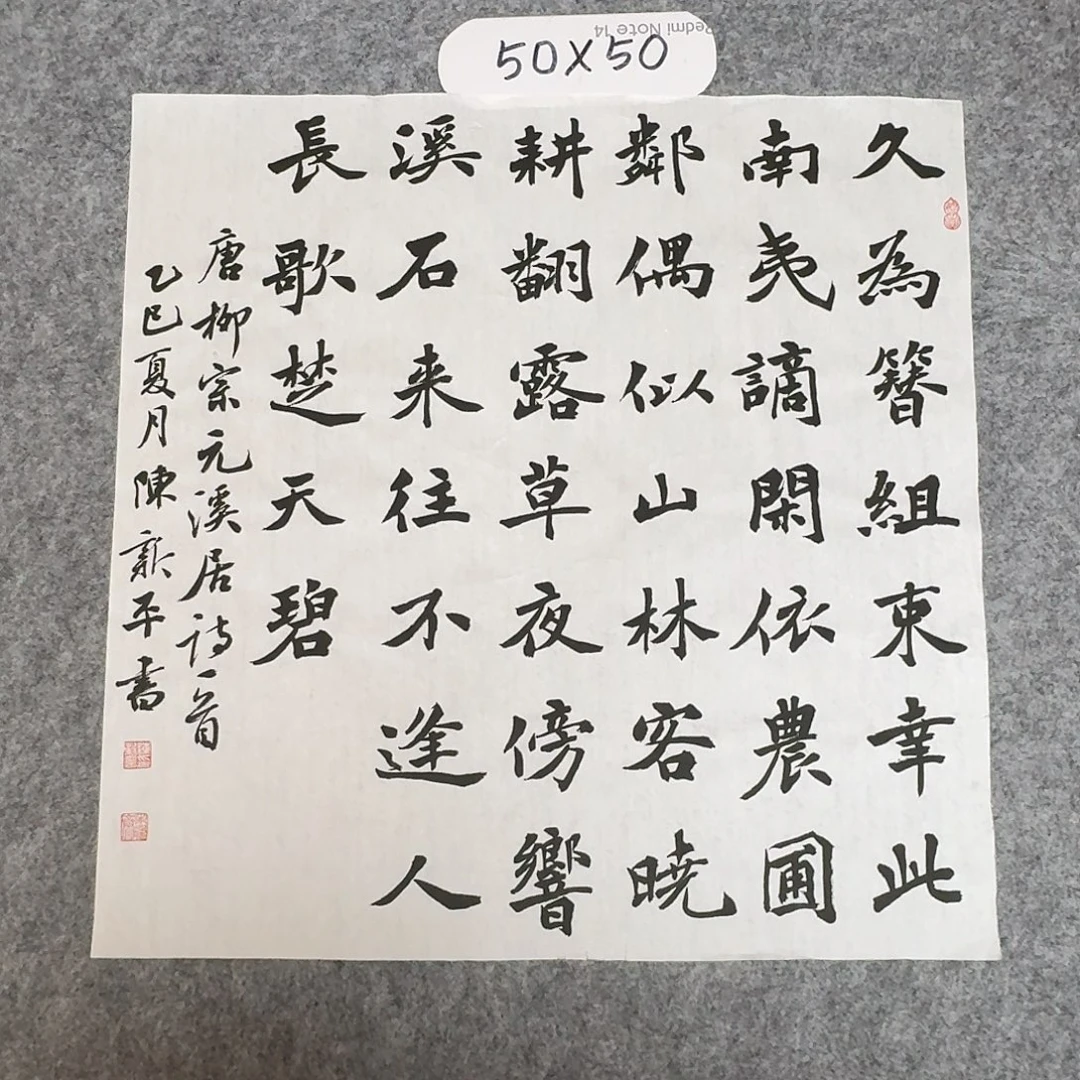 Redmi Note 14
50X50
久為簪組束幸此
南夷謫閑依農圃
鄰偶似山林客曉
耕翻露草夜傍響
溪石来往不逢人
長歌楚天碧
唐柳宗元溪居詩一首
乙巳夏月陳新平書